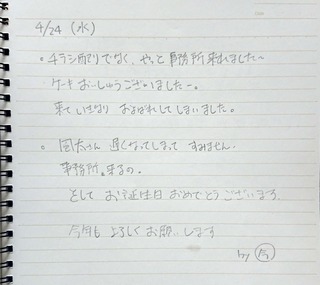 4/24 (水)
。チラシ配りでなく、やっと事務所来れました〜
ケーキおいしゅうございましたー。
来ていきなり およばれしてしまいました。
。 さん 遅くなってしまって すみません。
事務所。来るの。
そして お誕生日 おめでとうございます。
今年も よろしくお願いします
by 今